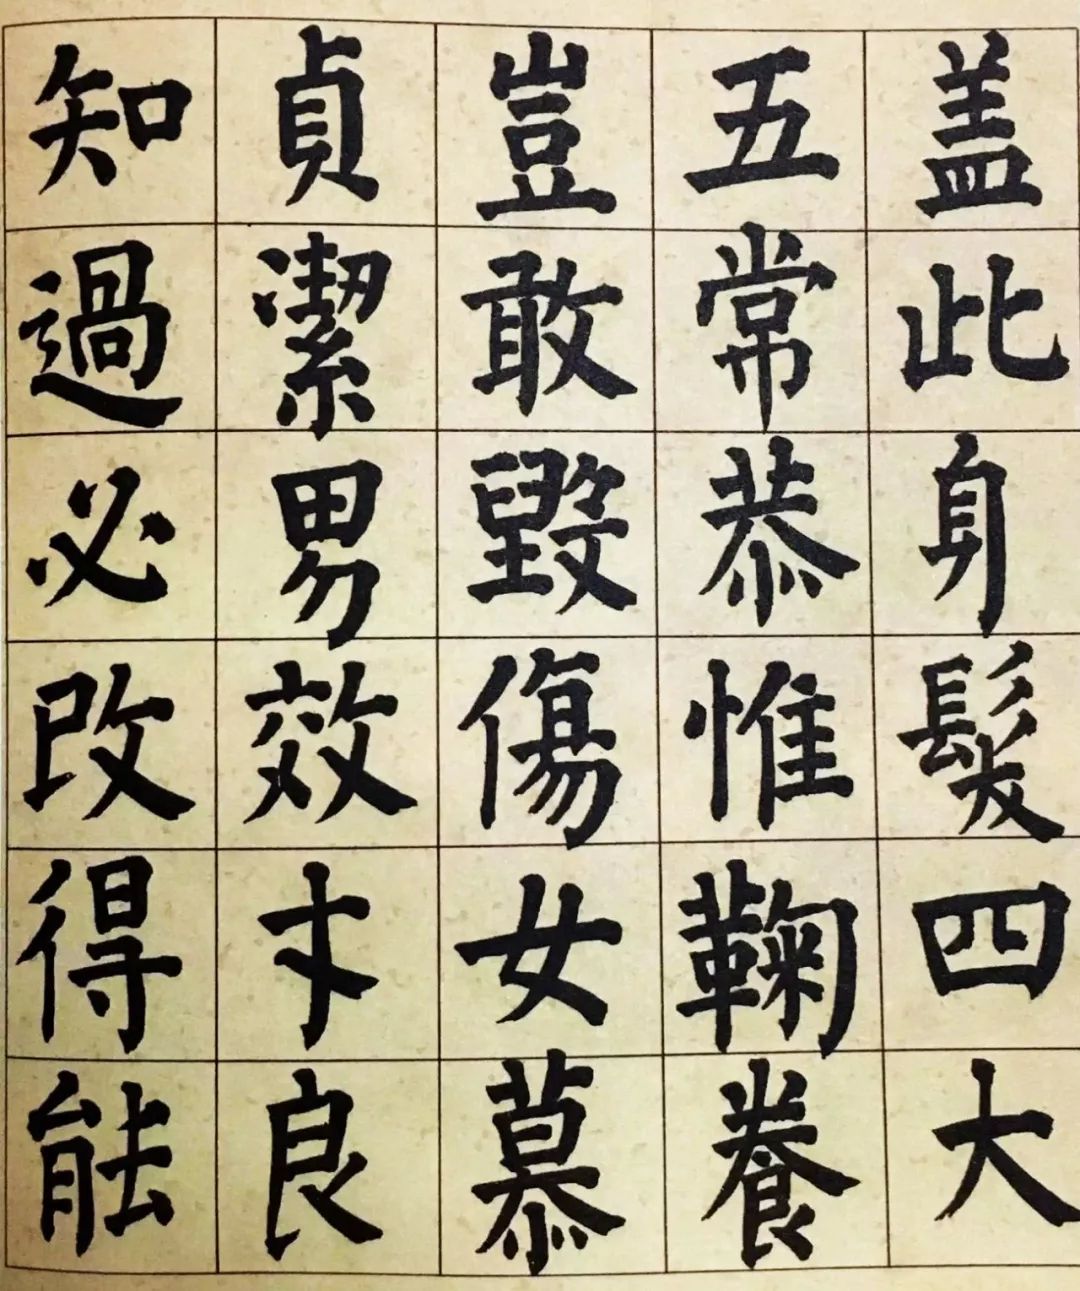 盖此身髮四大
五常恭惟鞠養
豈敢毀傷女慕
貞潔男效才良
知過必改得能